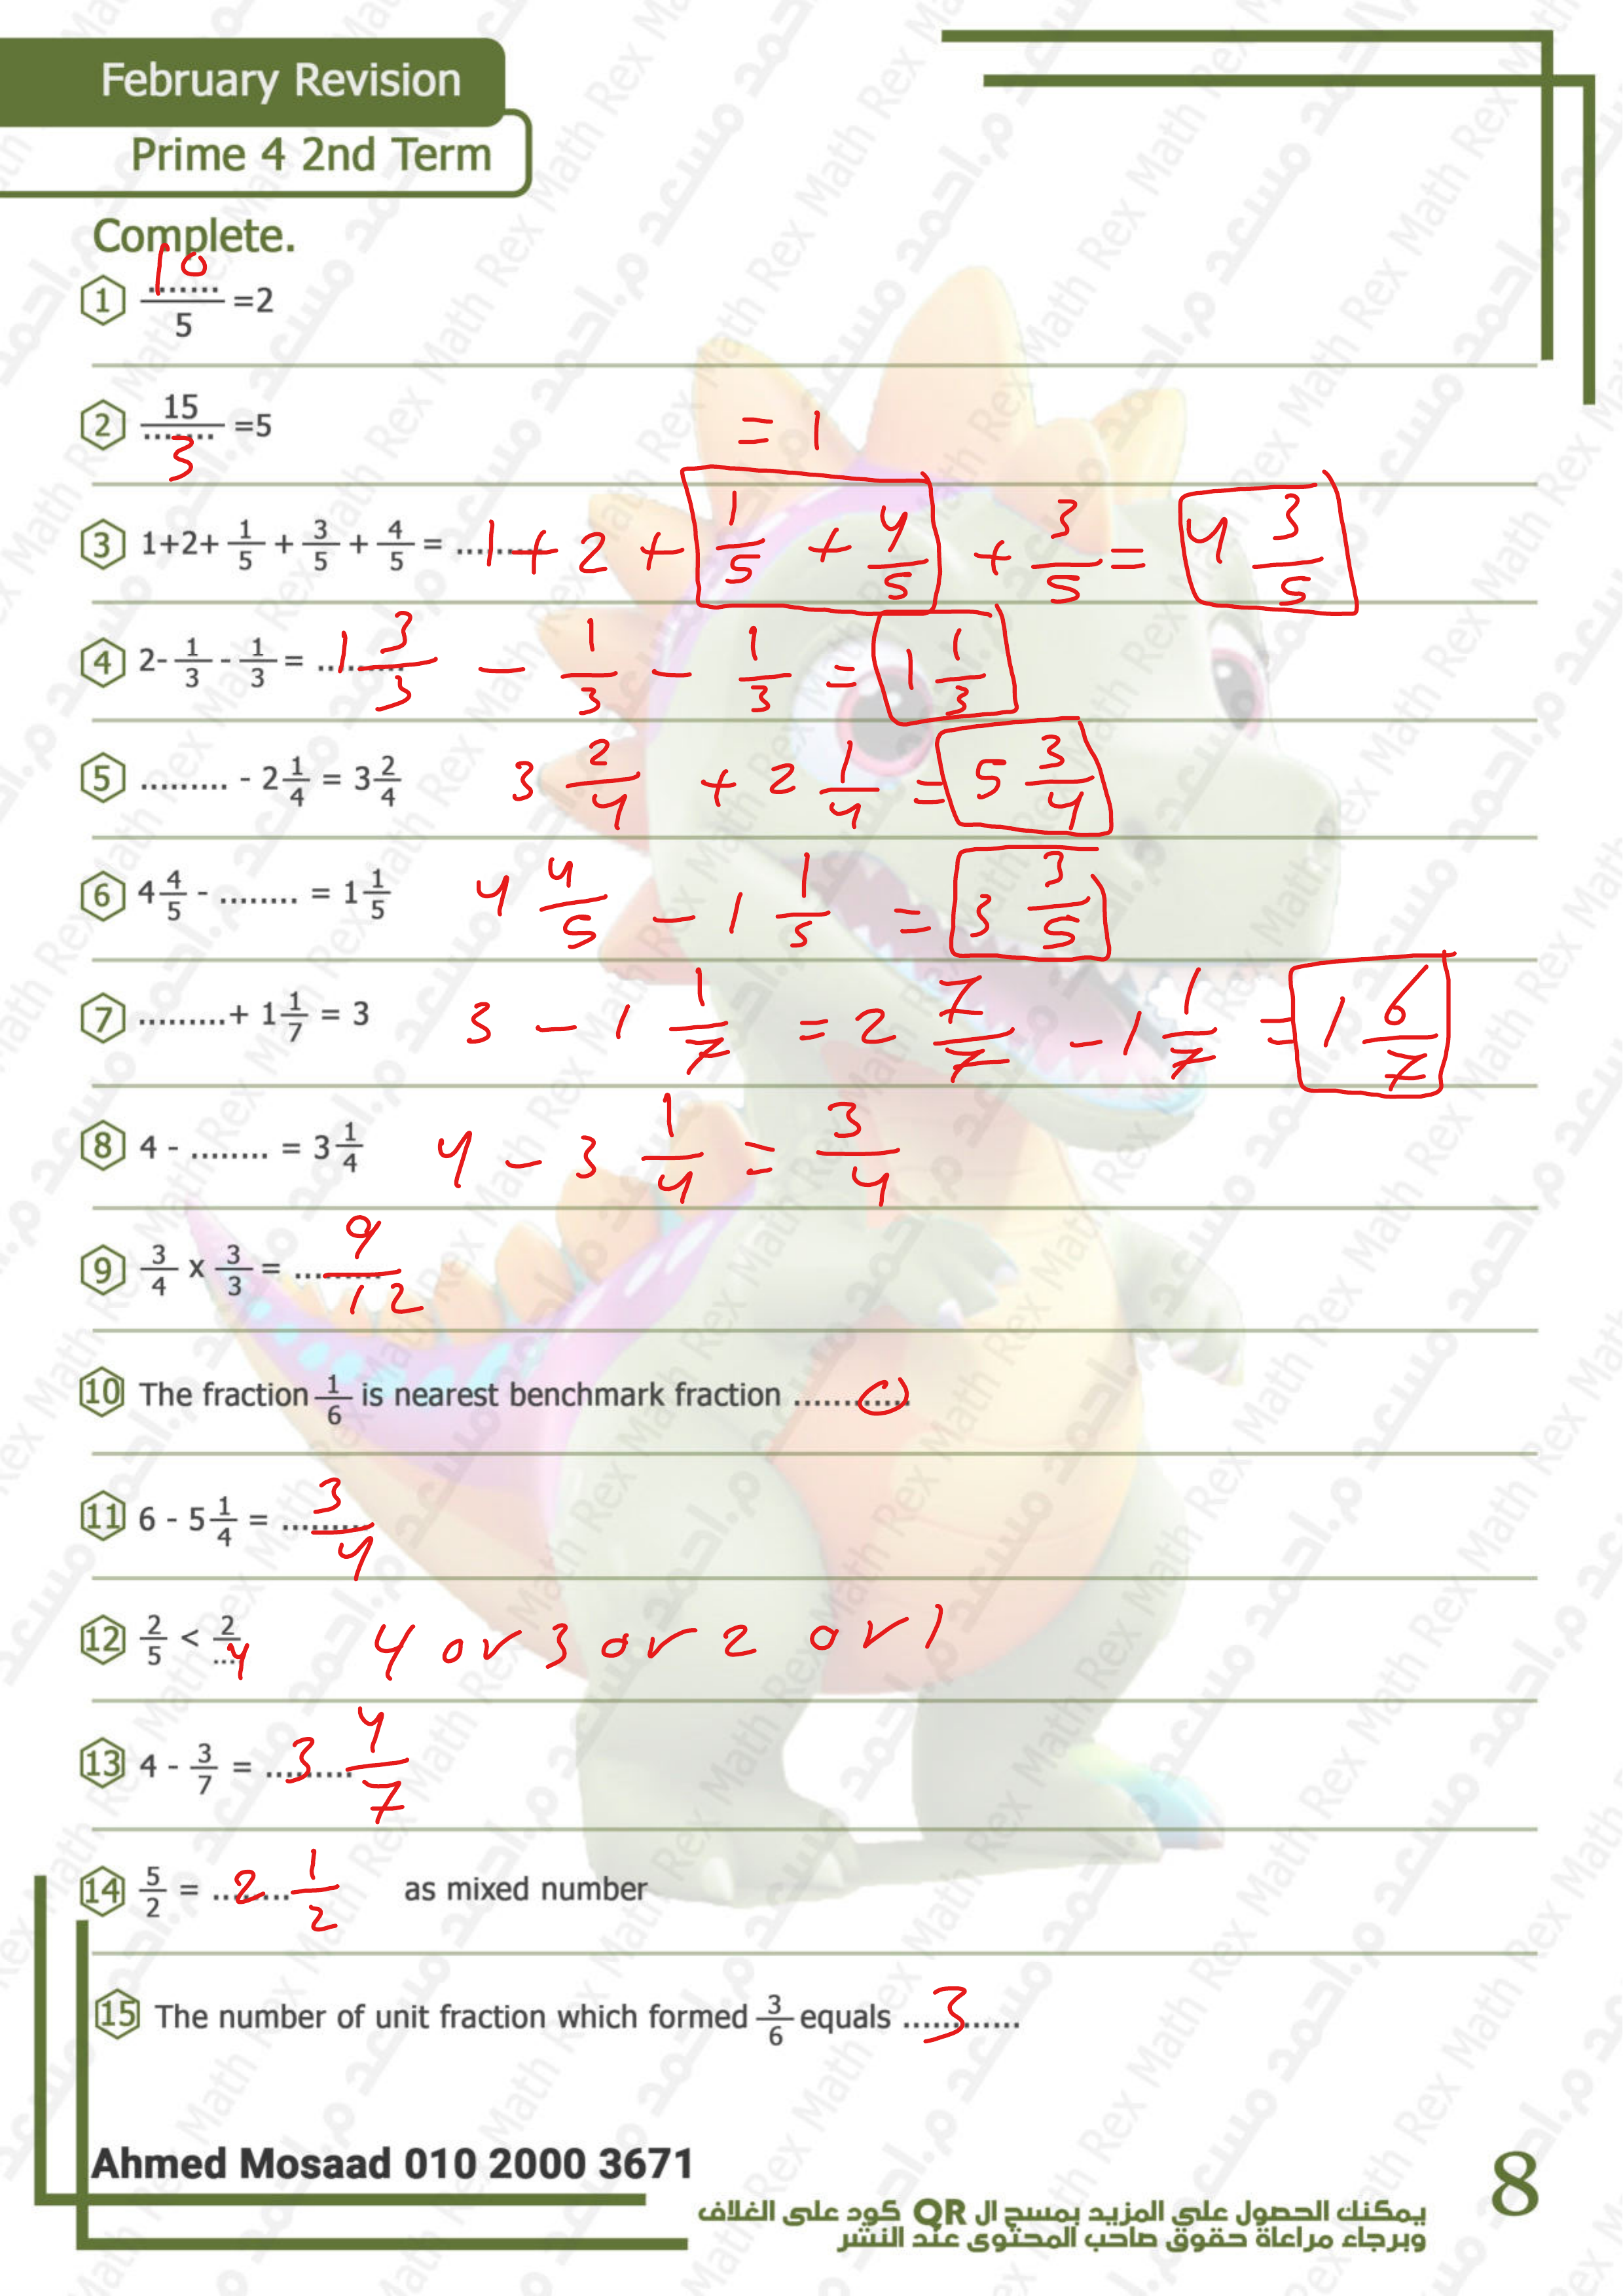 February Revision
Prime 4 2nd Term
Complete.
1 10/5 =2
2 15/3 =5
= 1
3 1+2+ 1/5 + 3/5 + 4/5 = ......... 1 + 2 + 1/5 + 4/5 + 3/5 = 4 3/5
4 2- 1/3 - 1/3 = ......... 1 3/3 - 1/3 - 1/3 = 1 1/3
5 ......... - 2 1/4 = 3 2/4 3 2/4 + 2 1/4 = 5 3/4
6 4 4/5 - ........ = 1 1/5 4 4/5 - 1 1/5 = 3 3/5
7 .........+ 1 1/7 = 3 3 - 1 1/7 = 2 7/7 - 1 1/7 = 1 6/7
8 4 - ........ = 3 1/4 4 - 3 1/4 = 3/4
9 3/4 x 3/3 = ......... 9/12
10 The fraction 1/6 is nearest benchmark fraction ............ 0
11 6 - 5 1/4 = ......... 3/4
12 2/5 < 2/4 4 or 3 or 2 or 1
13 4 - 3/7 = ......... 3 4/7
14 5/2 = ........ 2 1/2 as mixed number
15 The number of unit fraction which formed 3/6 equals ............ 3
Ahmed Mosaad 010 2000 3671
يمكنك الحصول على المزيد بمسح ال QR كود على الغلاف
وبرجاء مراعاة حقوق صاحب المحتوى عند النشر
8
Math Rex
م.احمد مسعد